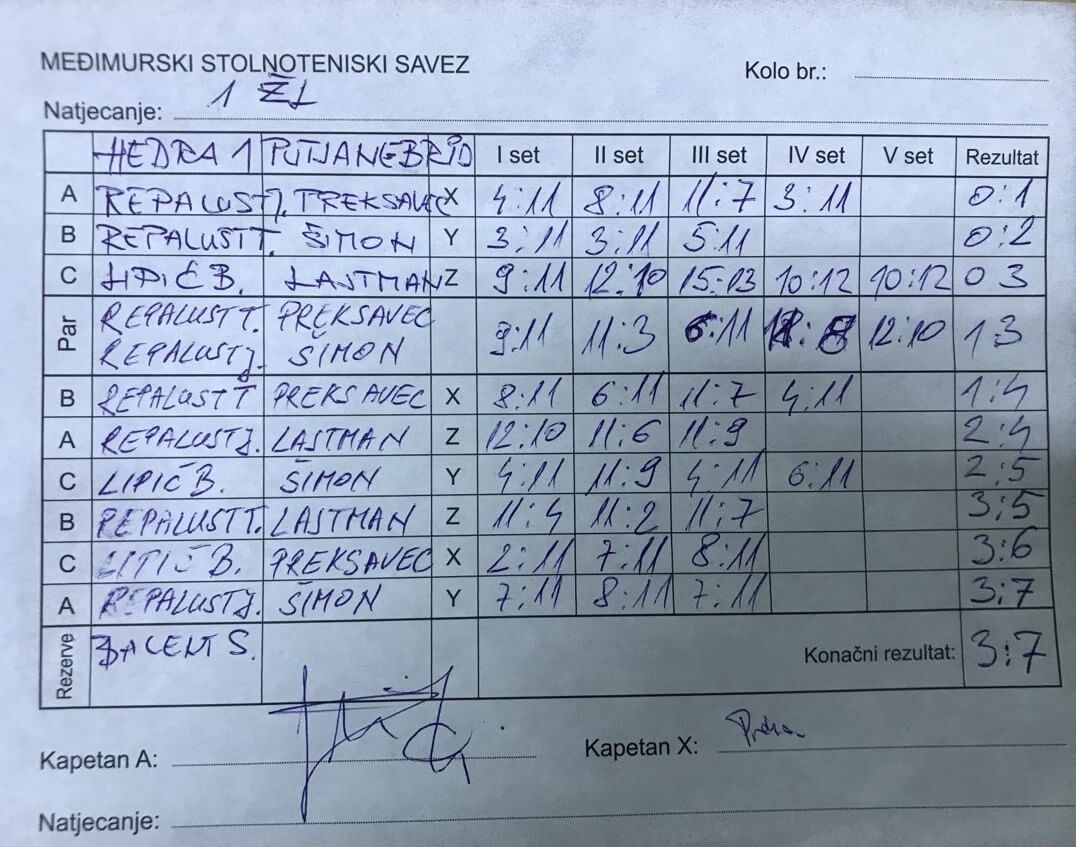 MEĐIMURSKI STOLNOTENISKI SAVEZ
Kolo br.:
Natjecanje: 1 ŽL
HEDRA 1 PUTJANE BRID I set II set III set IV set V set Rezultat
A REPALUST J. PREKSAVEC X 4:11 8:11 11:7 3:11 0:1
B REPALUST T. ŠIMON Y 3:11 3:11 5:11 0:2
C LIPIĆ B. LASTMAN Z 9:11 12:10 15:13 10:12 10:12 0 3
Par REPALUST T. PREKSAVEC 9:11 11:3 6:11 12:10 1:3
REPALUST J. ŠIMON
B REPALUST T PREKSAVEC X 8:11 6:11 11:7 4:11 1:4
A REPALUST J. LASTMAN Z 12:10 11:6 11:9 2:4
C LIPIĆ B. ŠIMON Y 4:11 11:9 4:11 6:11 2:5
B REPALUST T. LASTMAN Z 11:4 11:2 11:7 3:5
C LIPIĆ B. PREKSAVEC X 2:11 7:11 8:11 3:6
A REPALUST J. ŠIMON Y 7:11 8:11 7:11 3:7
Rezerve BALENT S. Konačni rezultat: 3:7
Kapetan A:
Kapetan X:
Natjecanje: